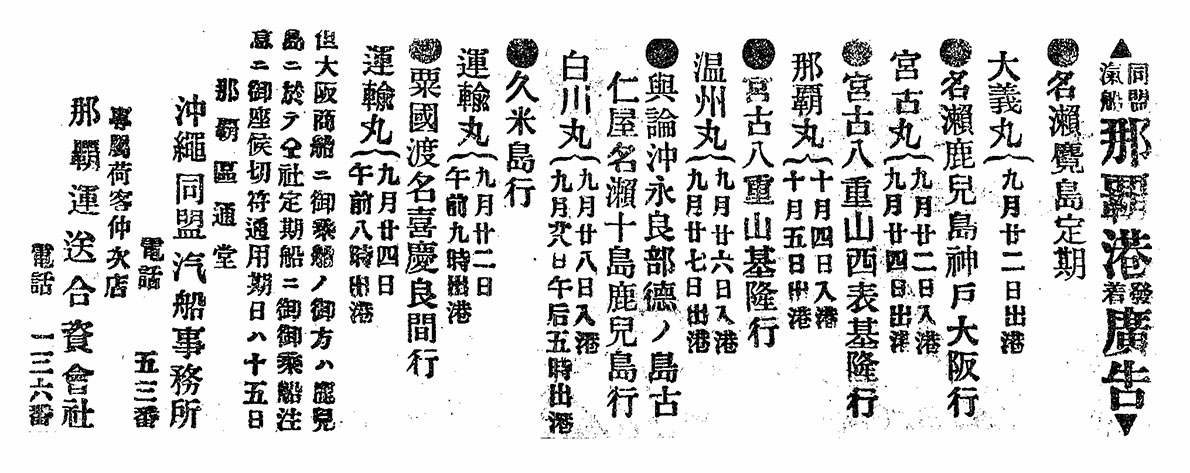 ▲同盟汽船那覇港発着廣告▼
●名瀬麑島定期
大義丸(九月廿二日出港
●名瀬鹿兒島神戸大阪行
宮古丸(九月廿二日入港
九月廿四日出港
●宮古八重山西表基隆行
那覇丸(十月四日入港
十月五日出港
●宮古八重山基隆行
温州丸(九月廿六日入港
九月廿七日出港
●與論沖永良部德ノ島古
仁屋名瀬十島鹿兒島行
白川丸(九月廿八日入港
九月 日午后五時出港
●久米島行
運輸丸(九月廿二日
午前九時出港
●粟國渡名喜慶良間行
運輸丸(九月廿四日
午前八時出港
但大阪商船ニ御乘船ノ御方ハ鹿兒
島ニ於テ仝社定期船ニ御御乘船注
意ニ御座候切符通用期日ハ十五日
那覇區通堂
沖繩同盟汽船事務所
電話 五三番
專屬荷客仲次店
那覇運送合資會社
電話 一三六番